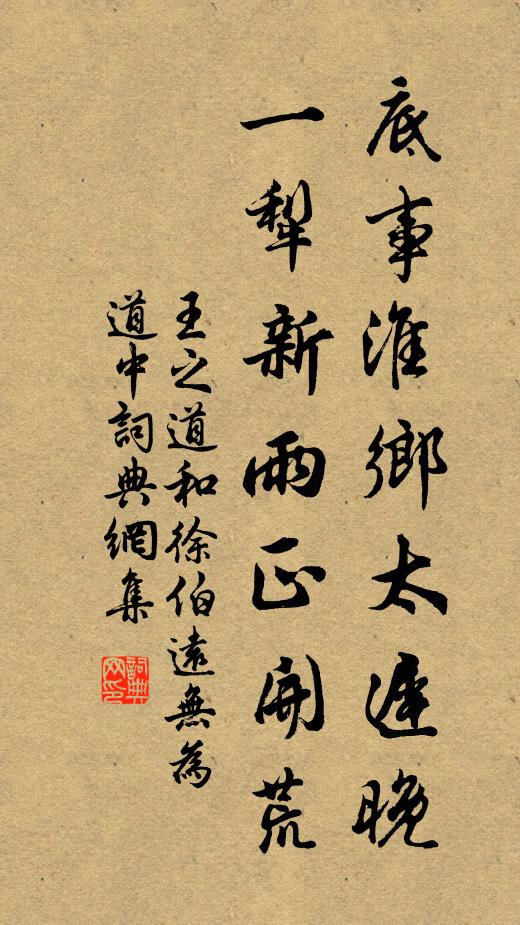 底事淮鄉太遲晚
一犁新雨正開荒
王之道和徐伯遠無為
道中詞典網集
詞典網印